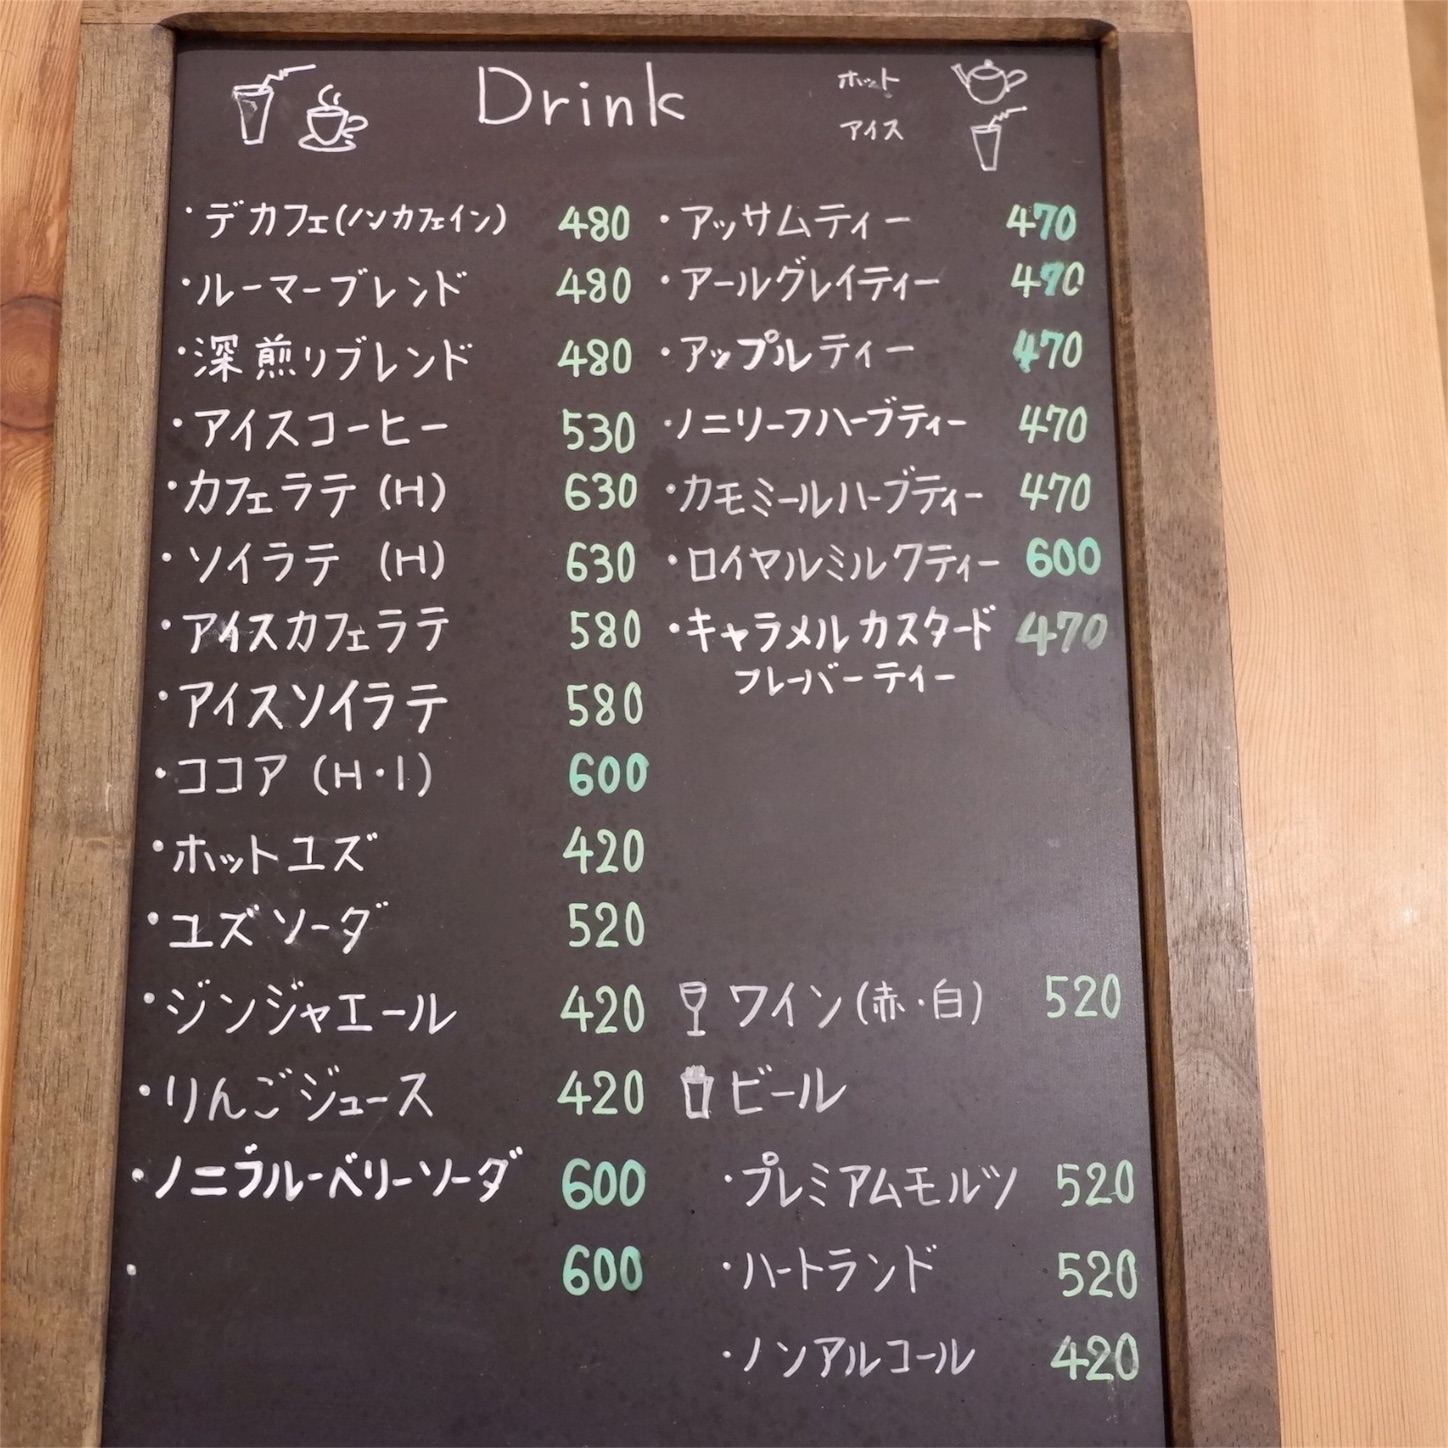 Drink
ホット
アイス
・デカフェ(ノンカフェイン) 480
・ルーマーブレンド 480
・深煎りブレンド 480
・アイスコーヒー 530
・カフェラテ (H) 630
・ソイラテ (H) 630
・アイスカフェラテ 580
・アイスソイラテ 580
・ココア (H・I) 600
・ホットユズ 420
・ユズソーダ 520
・ジンジャエール 420
・りんごジュース 420
・ノニブルーベリーソーダ 600
・ 600
・アッサムティー 470
・アールグレイティー 470
・アップルティー 470
・ノニリーフハーブティー 470
・カモミールハーブティー 470
・ロイヤルミルクティー 600
・キャラメルカスタード 470
フレーバーティー
ワイン(赤・白) 520
ビール
・プレミアムモルツ 520
・ハートランド 520
・ノンアルコール 420